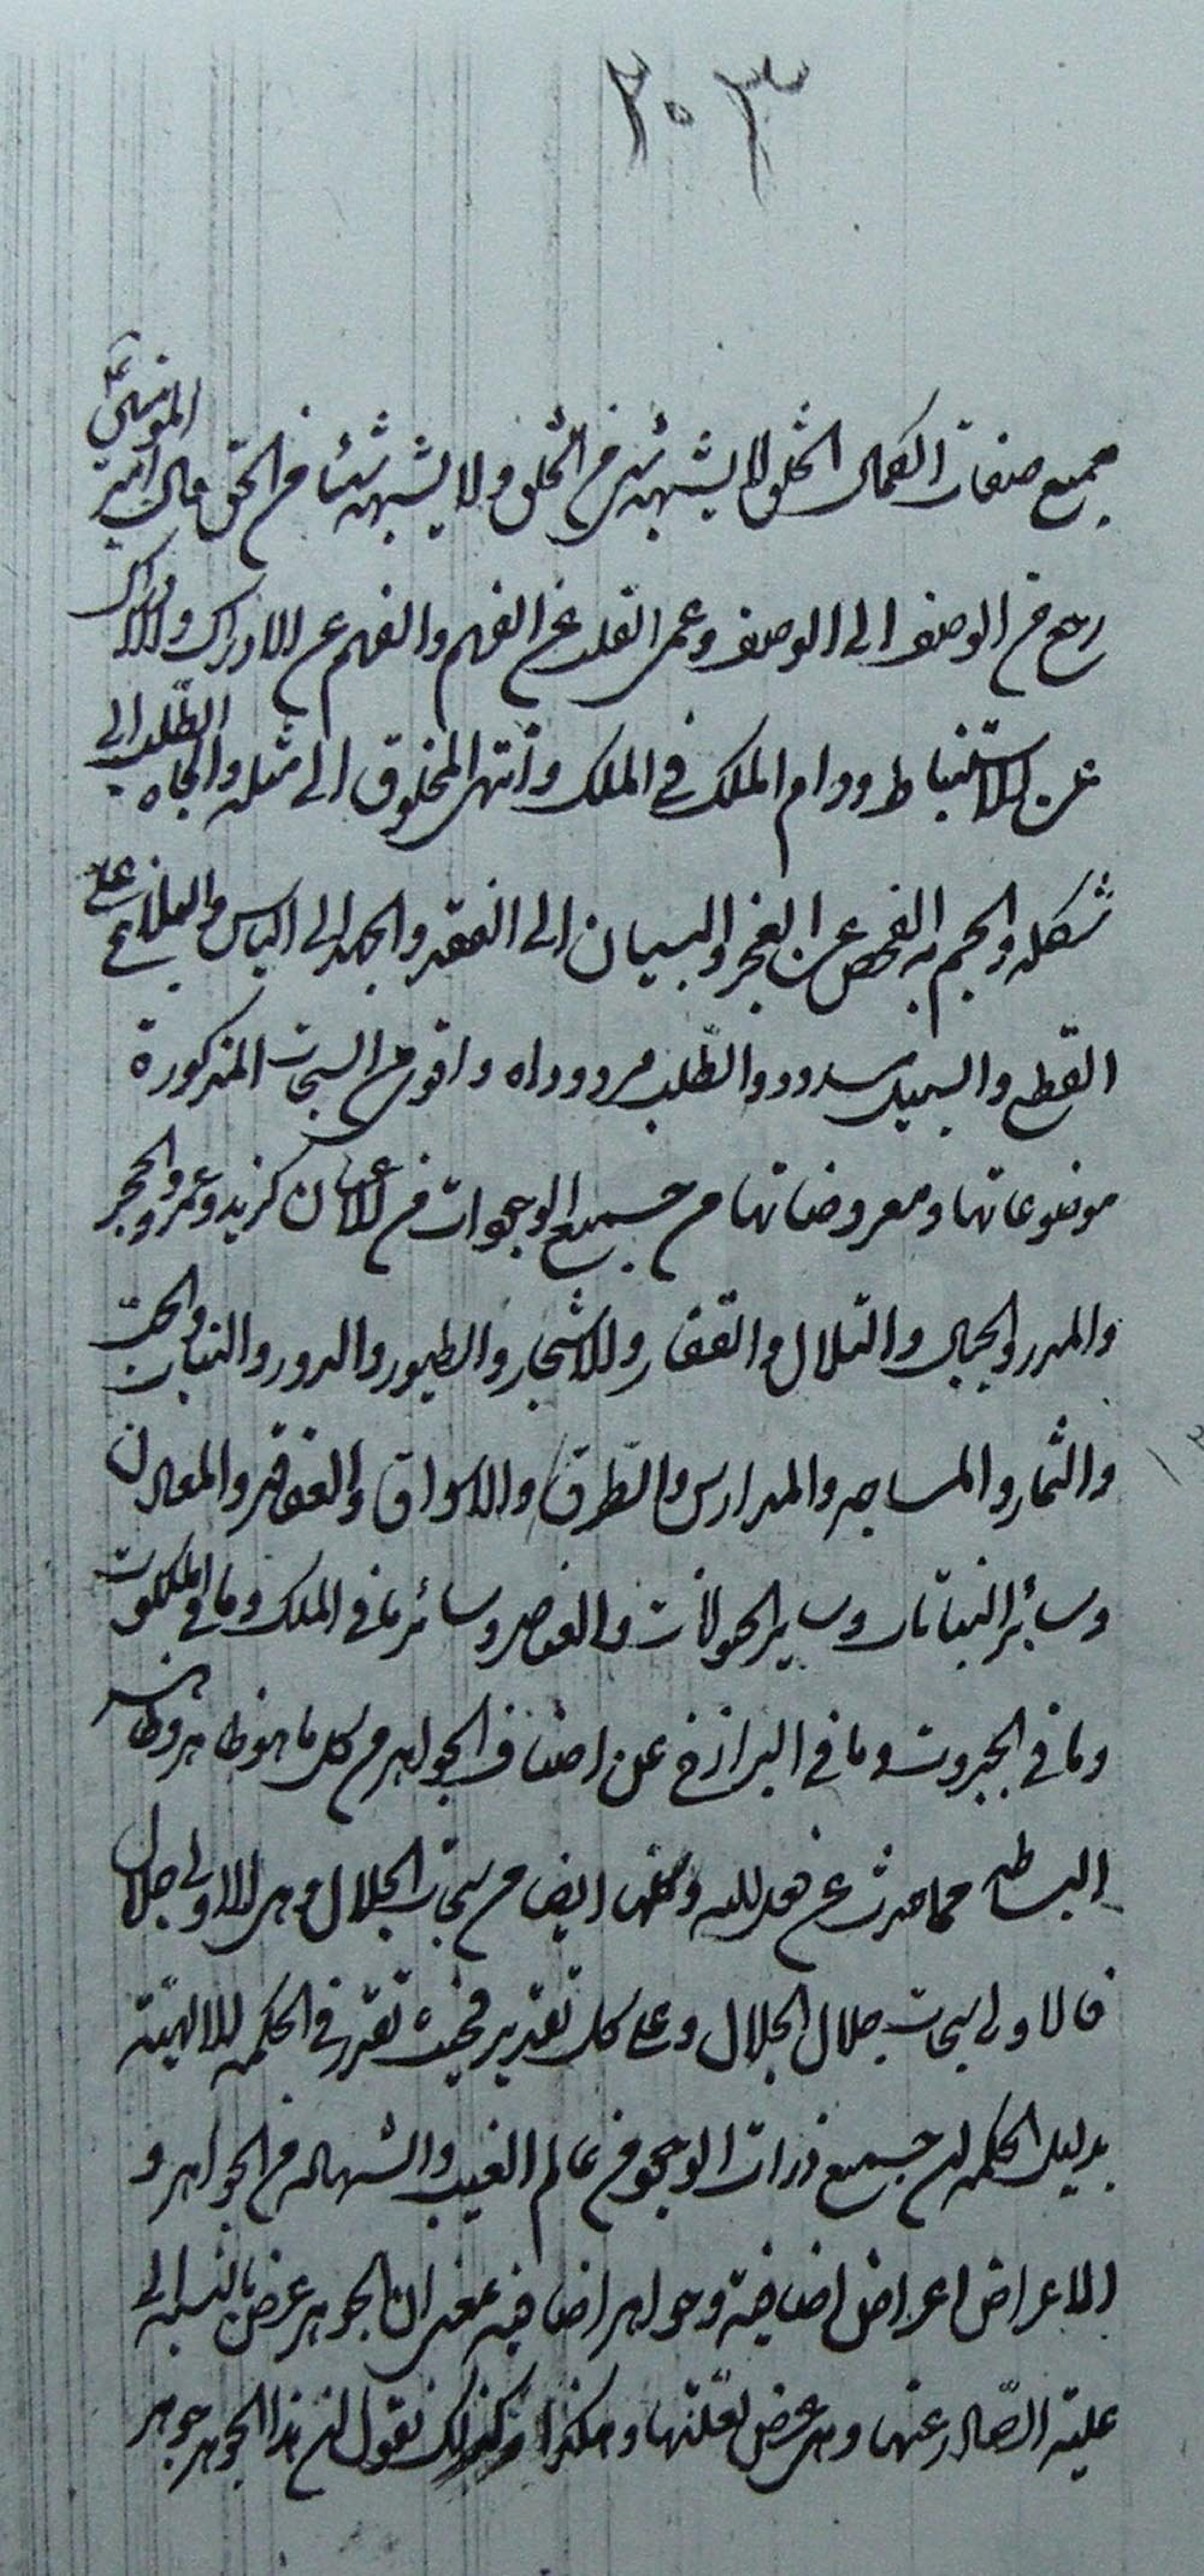 ٢٠٣
جميع صفات الكمال الخلق لا يشبهه شئ من الخلق ولا يشبه شيئا من الحق قال امير المؤمنين ع
رجع من الوصف الى الوصف وعمى القلب عن الفهم والفهم عن الادراك والادراك
عن الاستنباط ودام الملك في الملك وانتهى المخلوق الى مثله والجاه الطلب الى
شكله والجم به الفحص عن العجز والبيان الى الفقد والجهد الى الياس والبلاغ على
القطع والسبيل مسدود والطلب مردود اه واقول السبحات المذكورة
موضوعاتها ومعروضاتها من جميع الوجودات من الاعيان كزيد وعمرو والحجر
والمدر والجبال والتلال والقفار والاشجار والطيور والدور والنبات
والثمار والمساجد والمدارس والطرق والاسواق والمعادن
وسائر النباتات وساير الحيوانات والعناصر وسائر ما في الملك وما في الملكوت
وما في الجبروت وما في البرازخ على اصناف الجواهر من كل ما هو ظاهر
الباطن مما صدرت عن فعل الله وكلها ايضا من سبحات الجلال وهى الاولى جلال
فالاولى سبحات جلال الجلال وعلى كل تقدير تقرر في الحكمة الالهية
بدليل الحكمة ان جميع ذرات الوجود من عالم الغيب والشهادة من الجواهر و
الاعراض اعراض اضافية وجواهر اضافية بمعنى ان الجوهر عرض بالنسبة الى
علته الصادر عنها وهى عرض لعلتها وهكذا وكذلك نقول ان هذا الجوهر جوهر